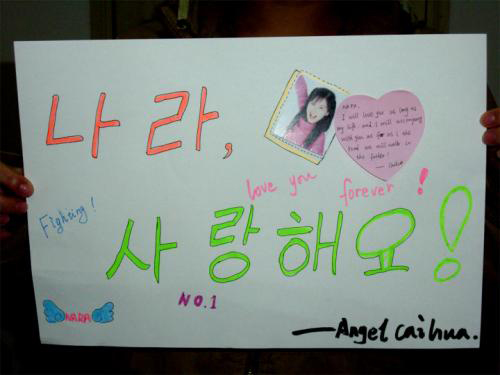 나라,
NARA,
I will love you as long as
my life. and I will accompany
with you as far as I the
road we will walk in
the future!
love you forever!
Fighting!
사랑해요!
NO.1
NARA
—Angel caihua.